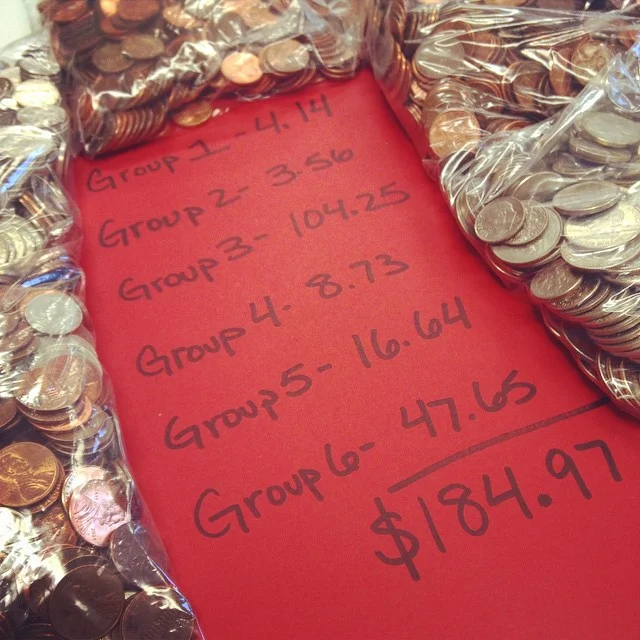 Group 1 - 4.14
Group 2 - 3.56
Group 3 - 104.25
Group 4 - 8.73
Group 5 - 16.64
Group 6 - 47.65
$184.97